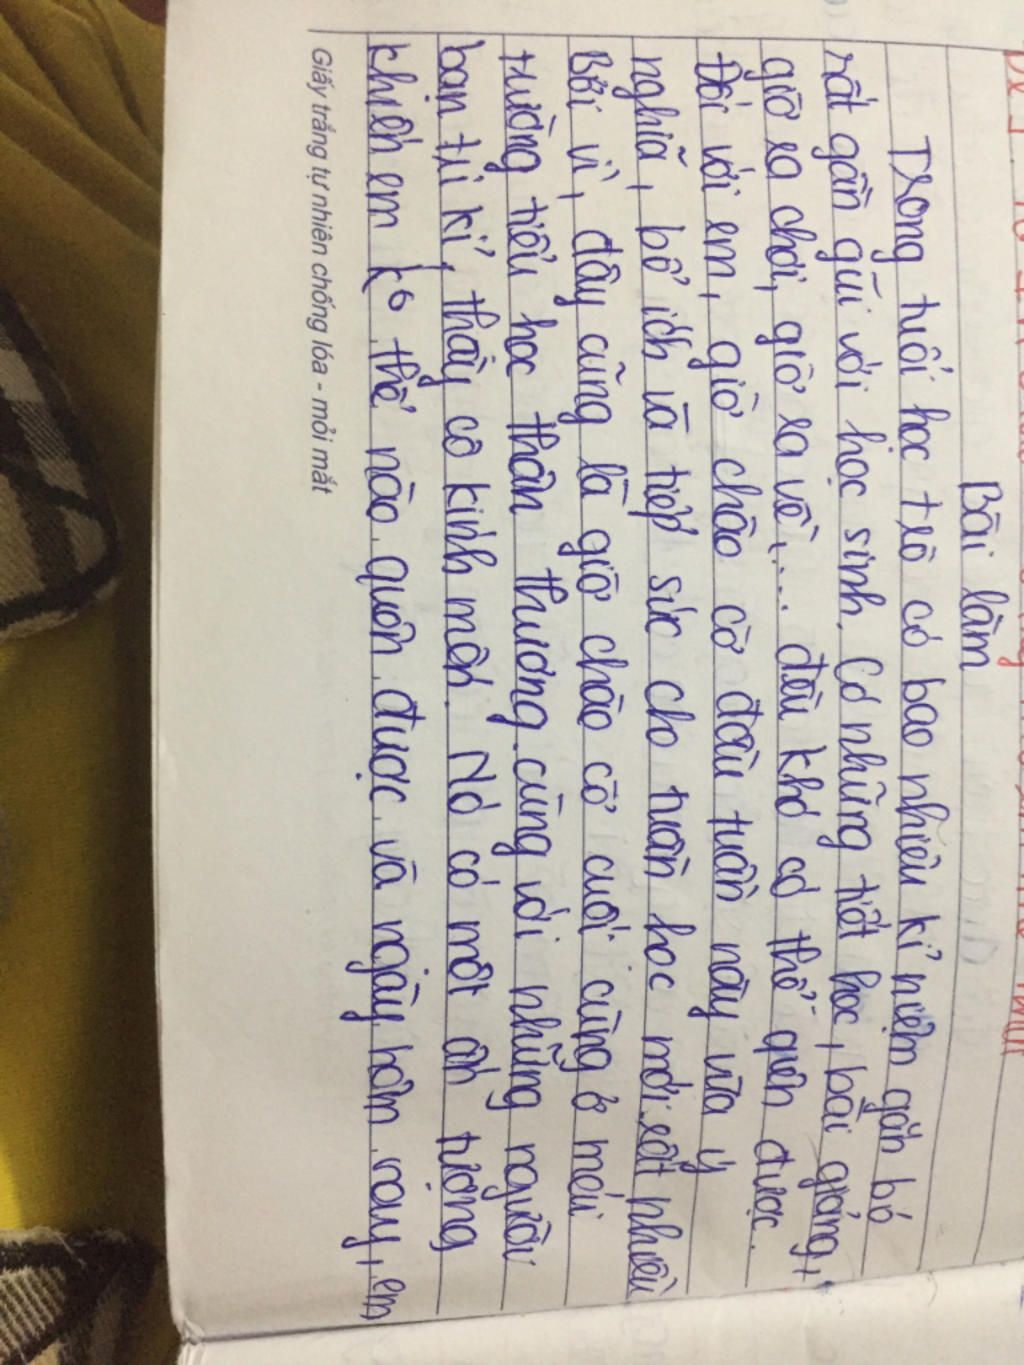 Bài làm
Trong tuổi học trò có bao nhiêu kỉ niệm gắn bó
rất gần gũi với học sinh. Có những tiết học, bài giảng,
giờ ra chơi, giờ ra về,... đều khó có thể quên được.
Đối với em, giờ chào cờ đầu tuần này vừa ý
nghĩa, bổ ích và tiếp sức cho tuần học mới rất nhiều
Bởi vì, đây cũng là giờ chào cờ cuối cùng ở mái
trường tiểu học thân thương cùng với những người
bạn tri kỉ, thầy cô kính mến. Nó có một ấn tượng
khiến em ko thể nào quên được và ngày hôm nay, em
Giấy trắng tự nhiên chống lóa - mỏi mắt